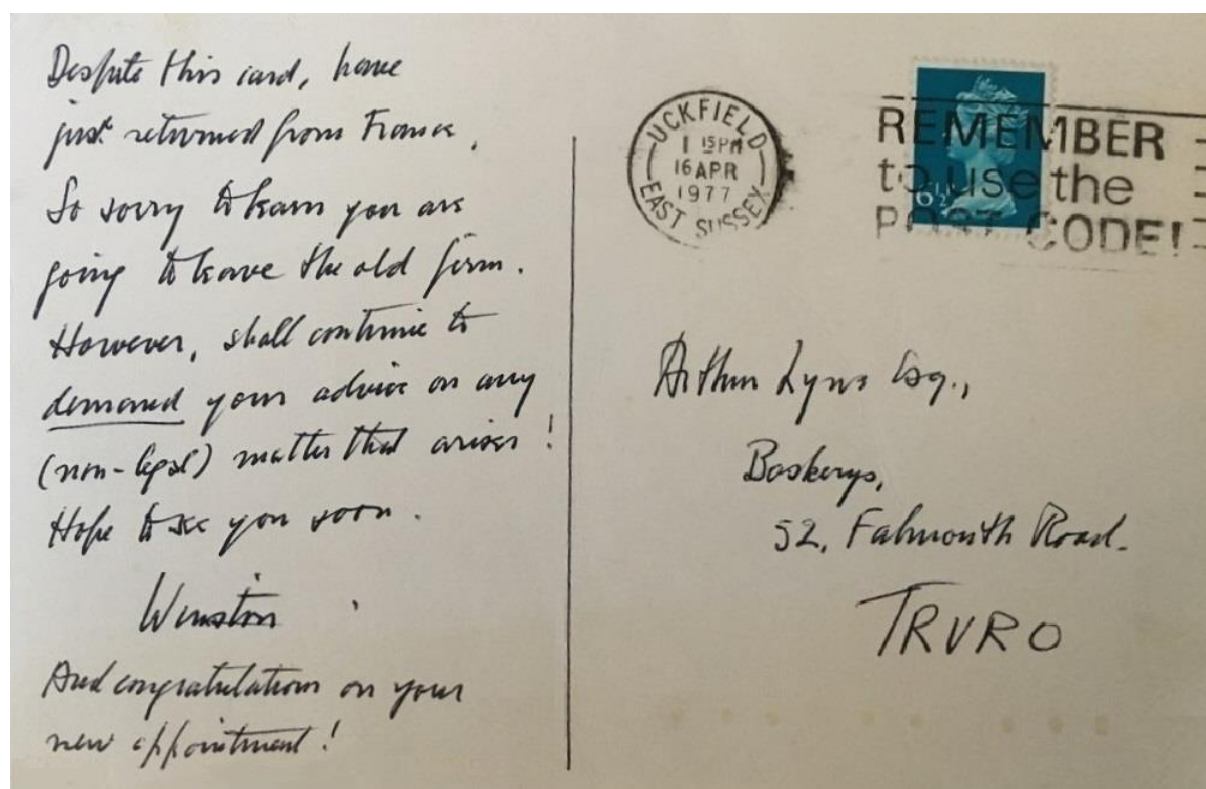 Despite this card, have
just returned from France.
So sorry to learn you are
going to leave the old firm.
However, shall continue to
demand your advice on any
(non-legal) matter that arises!
Hope to see you soon.
Winston
And congratulations on your
new appointment!
UCKFIELD
1 15PM
16 APR
1977
EAST SUSSEX
REMEMBER
to use the
POST CODE!
6½
Arthur Lyne Esq.,
52, Falmouth Road.
TRURO